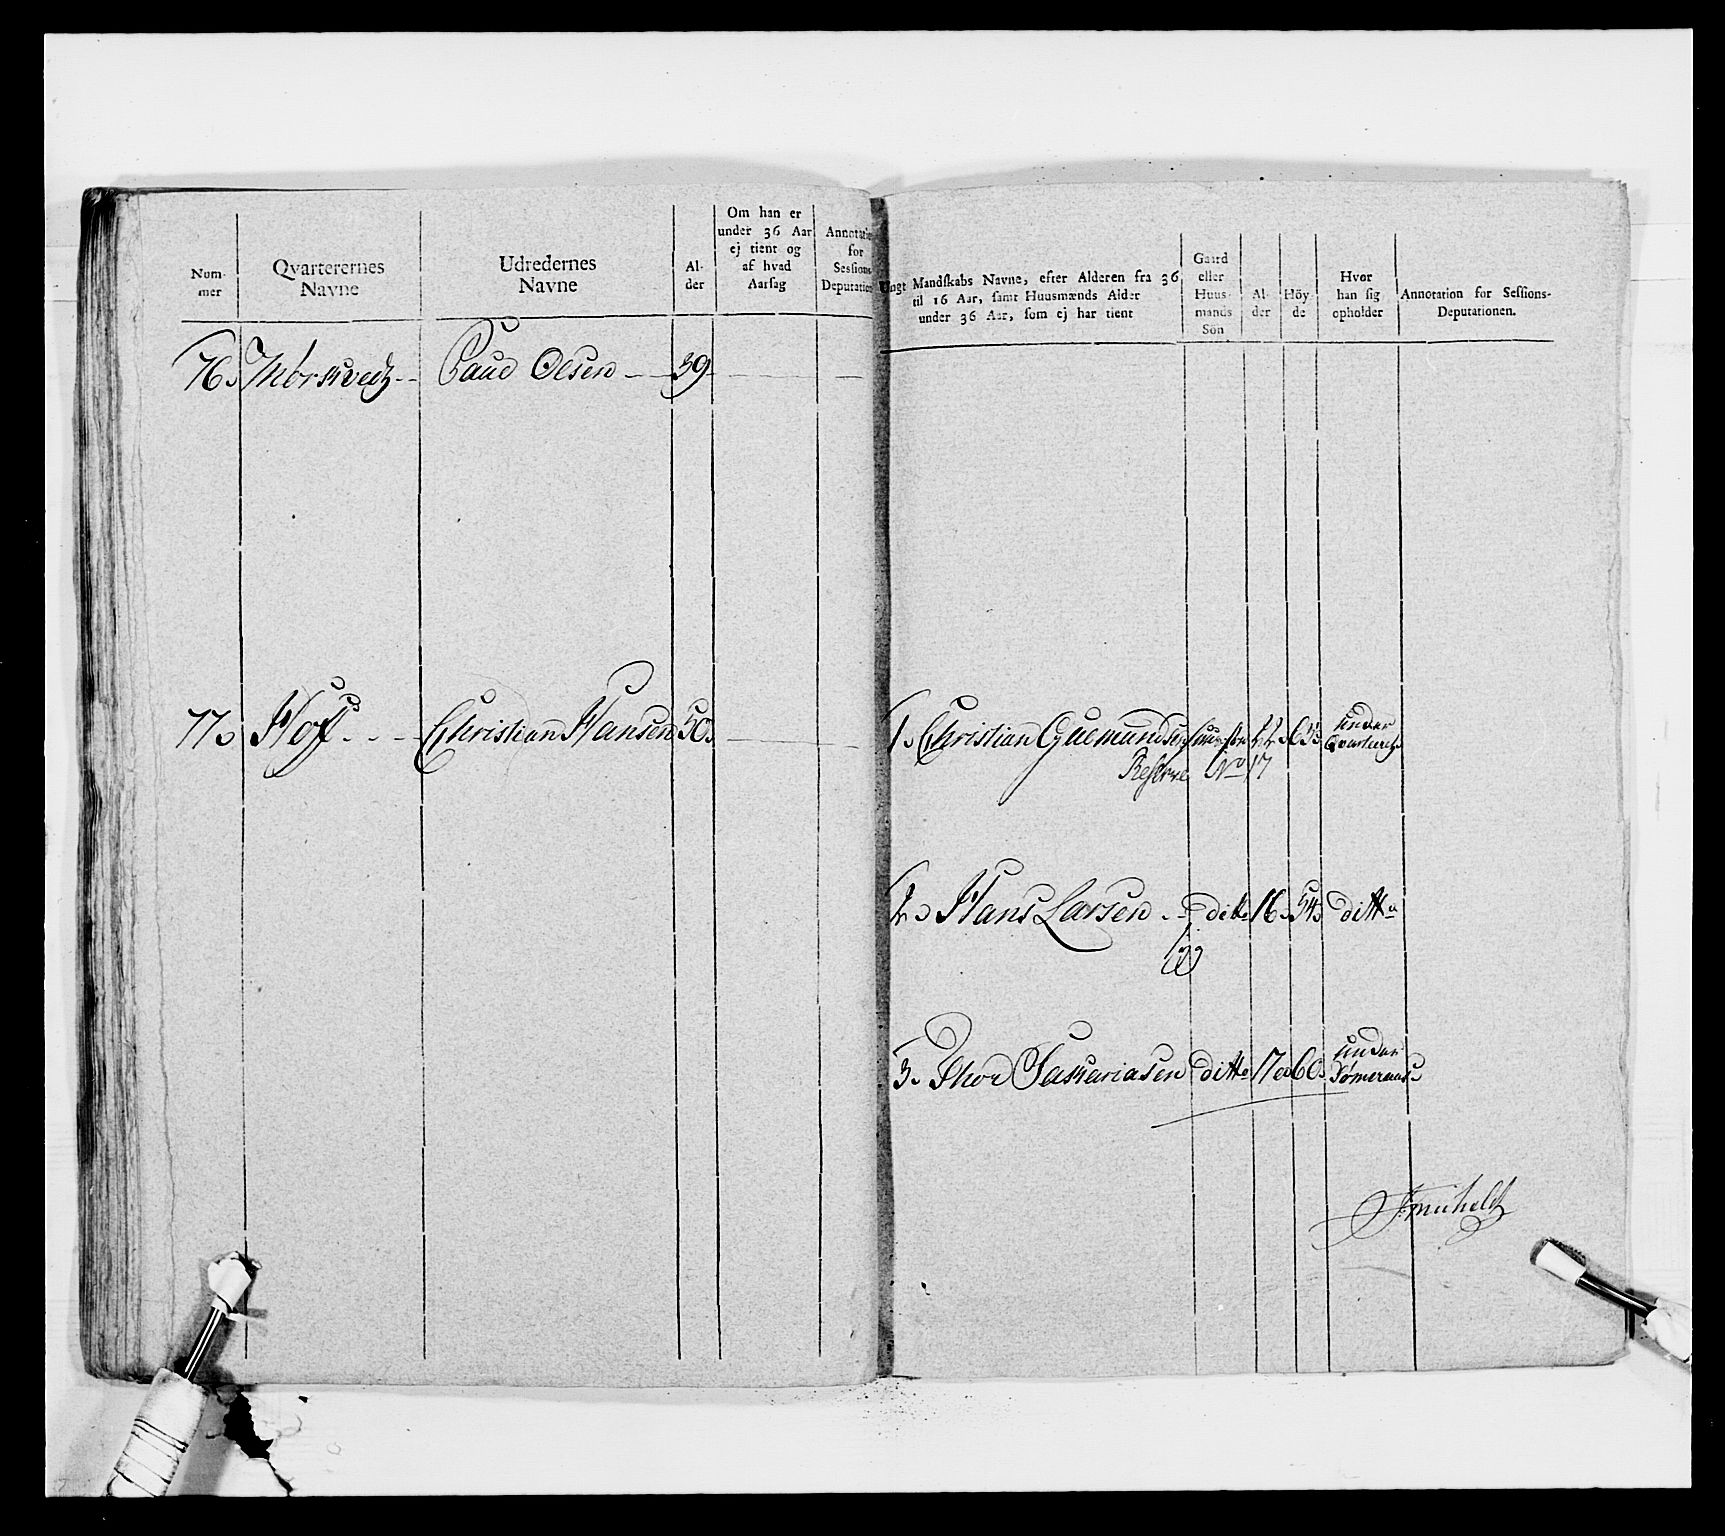 Num-
mer
Qvarterernes
Navne
Udredernes
Navne
Al-
der
Om han er
under 36 Aar
ej tient og
af hvad
Aarsag
Annotation
for
Sessions-
Deputationen
76. Mørkvedt - - Paul Olsen - 39
77. Hof - - - Christian Hansen 50.
Ungt Mandskabs Navne, efter Alderen fra 36
til 16 Aar, samt Huusmænds Alder
under 36 Aar, som ej har tient
Gaard
eller
Huus-
mands
Sön
Al-
der
Höy-
de
Hvor
han sig
opholder
Annotation for Sessions-
Deputationen.
1. Christian Gudmundsen 22. 63. under Qvarteret.
Reserve No 17
2. Hans Larsen - - dito 16. 54. ditto
3. Thor Sakariasen ditto 17 60. under